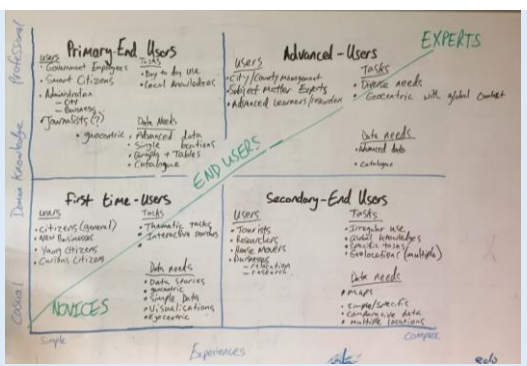 EXPERTS
Primary-End Users
Users
• Government Employees
• Smart Citizens
• Administration
– City
– Business
• Journalists (?)
Tasks
• Day to day use
• Local knowledge
Data Needs
• geocentric
• Advanced data
• Single locations
• Graphs + Tables
• Catalogue
Advanced-Users
Users
• City/County Management
• Subject Matter Experts
• Advanced Learners/
Tasks
• Diverse needs
• Geocentric with global context
Data needs
• Advanced data
• Catalogue
END USERS
First time-Users
Users
• Citizens (general)
• New Businesses
• Young Citizens
• Citizens
Tasks
• Thematic tasks
• Interactive
Data needs
• Data Stories
• geocentric
• Simple Data
• Visualisations
• Egocentric
NOVICES
Secondary-End Users
Users
• Tourists
• Researchers
• House Movers
• Businesses
– relocation
– research
Tasks
• Irregular use
• Global knowledge
• Specific tasks
• Geolocations (multiple)
Data needs
• Maps
• Simple/Specific
• Comparative data
• multiple locations
Professional
Domain Knowledge
Casual
Simple
Experiences
Complex